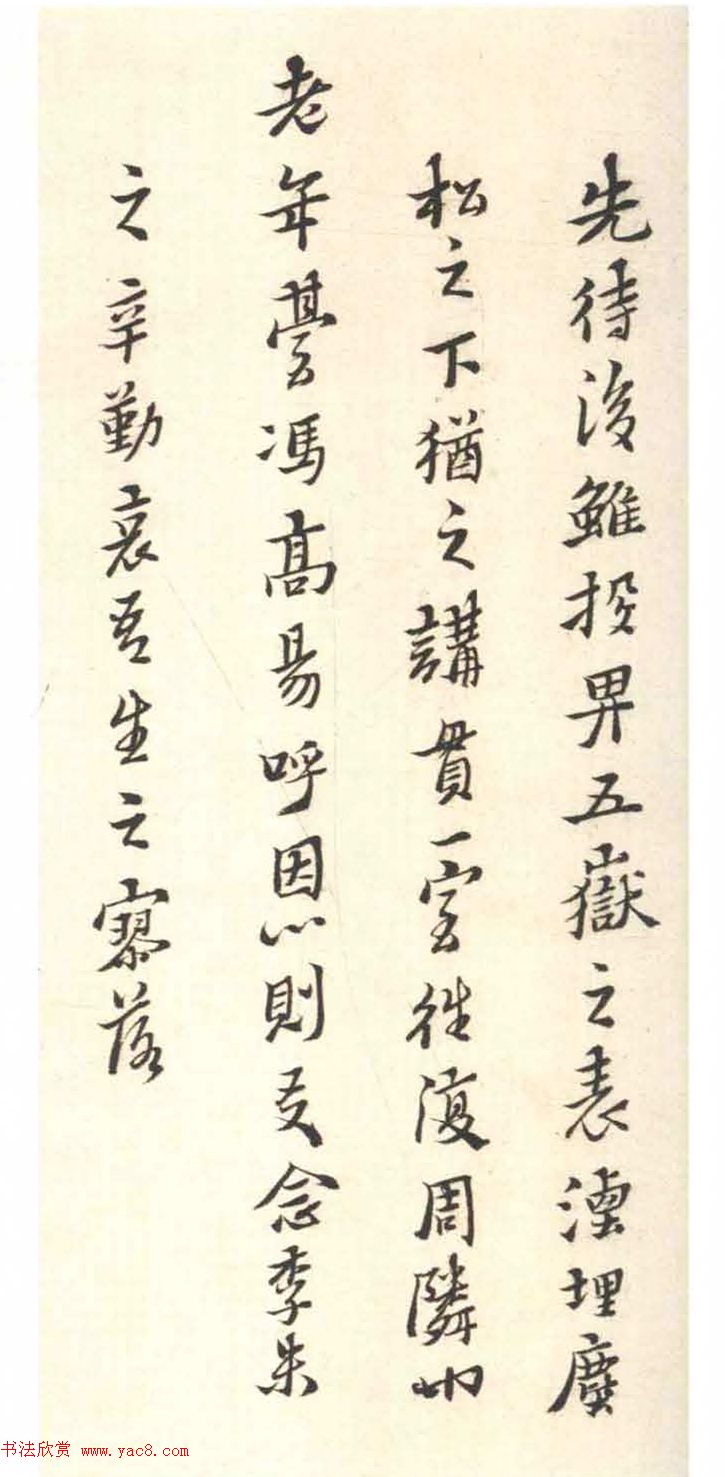 先待後雖投畀五嶽之表湮埋塵
松之下猶之講貫一室往復周隣也
老年曇馮高易呼因心則友念季朱
之辛勤哀吾生之寥落
书法欣赏 www.yac8.com